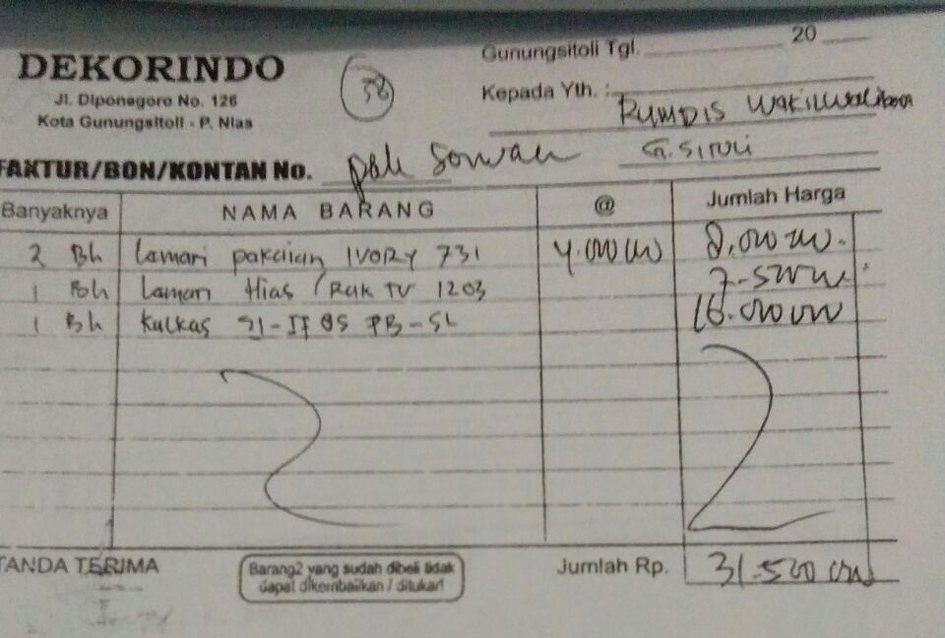 DEKORINDO
Jl. Diponegoro No. 126
Kota Gunungsitoli - P. Nias
38
Gunungsitoli Tgl. 20
Kepada Yth. :
RUMDIS WAKIL Walikota
G. SITOLI
FAKTUR/BON/KONTAN No. pak
Banyaknya NAMA BARANG @ Jumlah Harga
2 Bh Lamari pakaian IVORY 731 4.000.000 8.000.000.-
1 Bh Lamari Hias / Rak TV 1203 7.500.000
1 Bh Kulkas 16.000.000
TANDA TERIMA
Barang2 yang sudah dibeli tidak
dapat dikembalikan / ditukar!
Jumlah Rp. 31.500.000